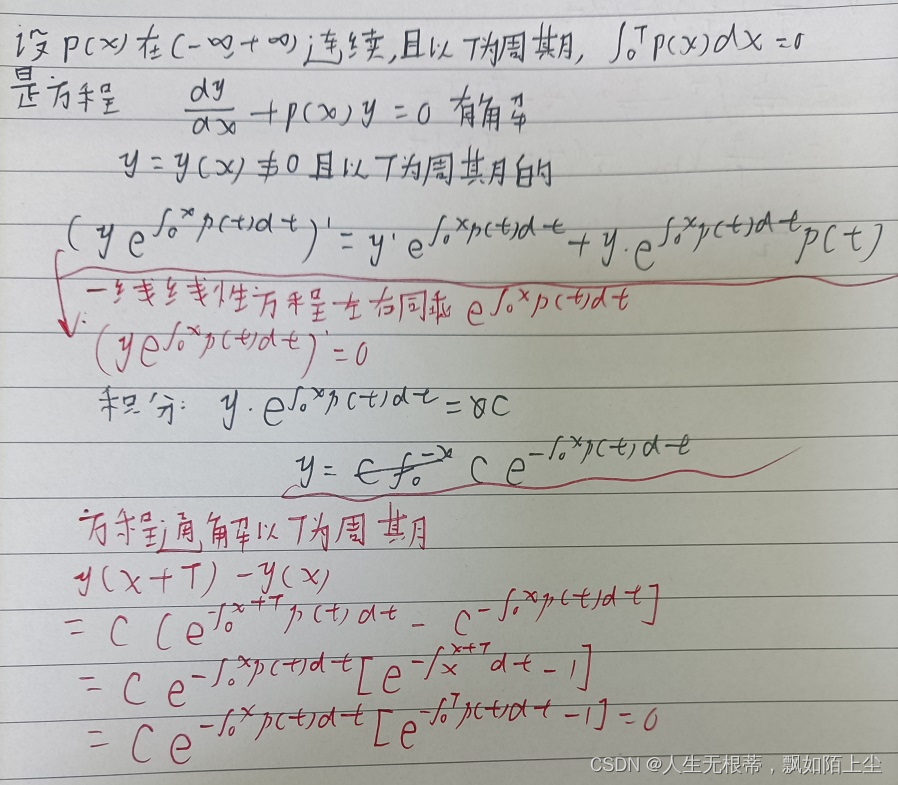 设p(x)在(-∞,+∞)连续,且以T为周期, ∫₀ᵀp(x)dx=0
是方程 dy/dx+p(x)y=0 有解
y=y(x)≢0且以T为周期的
(y e^{∫₀ˣp(t)dt})'=y'e^{∫₀ˣp(t)dt}+y·e^{∫₀ˣp(t)dt}p(t)
一线线性方程左右同乘 e^{∫₀ˣp(t)dt}
(ye^{∫₀ˣp(t)dt})'=0
积分: y·e^{∫₀ˣp(t)dt}=C
y= C e^{-∫₀ˣp(t)dt}
方程通解以T为周期
y(x+T)-y(x)
=C(e^{-∫₀^{x+T}p(t)dt}-C^{-∫₀ˣp(t)dt}]
=Ce^{-∫₀ˣp(t)dt}[e^{-∫ₓ^{x+T}dt}-1]
=Ce^{-∫₀ˣp(t)dt}[e^{-∫₀ᵀp(t)dt}-1]=0
CSDN @人生无根蒂，飘如陌上尘